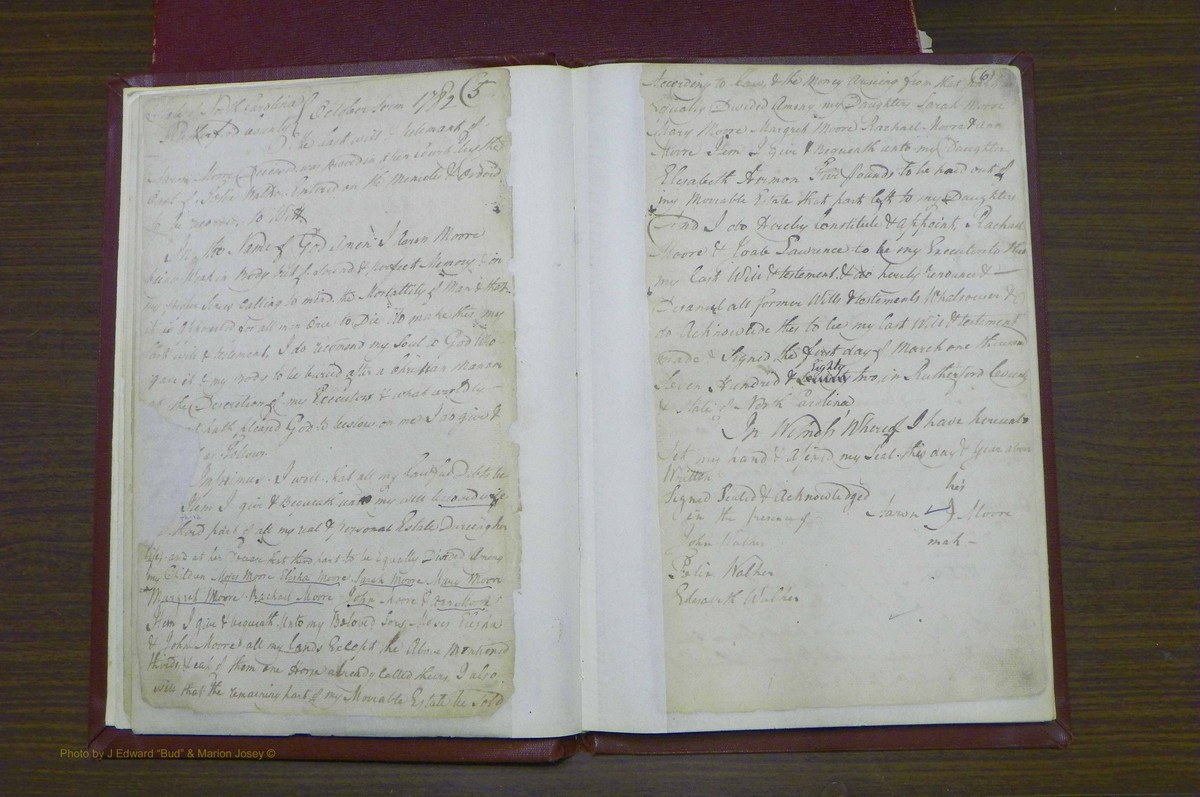 North Carolina } October Term 1782 (5
Rutherford County }
The last will & Testament of
Aaron Moore Deceased was proved in open Court by the
Oath of Felix Walker entered on the Minutes & Ordered
to be recorded to Witt
In the Name of God Amen I Aaron Moore
being Weak in Body but of Sound & perfect Memory & in
my Calling to mind the Mortallity of Man & that
it is appointed for all men once to Die Do make this my
last will & testament, I do recomend my Soul to God Who
gave it & my Body to be buried after a Christian Manner
at the Discretion of my Executors & what worldly
hath pleased God to bestow on me I do give &
as follows
Inprimus I will that all my lawfull Debts be
Item I give & Bequeath unto my well beloved wife
a third part of all my real & personal Estate Dureing her
life and at her that third part to be Equally Divided Among
my Children Mosey Moore Elisha Moore Sarah Moore Mary Moore
Margret Moore Rachael Moore John Moore & Ann Moore
Item I give & bequeath unto my Beloved Sons Moses Elisha
& John Moore all my lands Except the Above Mentioned
thirds & each of them one Horse already Called theirs I also
will that the remaining part of my Moveable Estate be Sold
(6)
According to Law & the Money Arising from this
Equally Divided Among my Daughters Sarah Moore
Mary Moore Margret Moore Rachael Moore & Ann
Moore Item I Give & Bequeath unto my Daughter
Elisabeth Hermon Five pounds to be paid out of
my Moveable Estate that part left to my Daughters
And I do Hereby Constitute & Appoint Rachael
Moore & Joab Lawrence to be my Executors to this
my Last Will & testament & do hereby renounce &
Disanul all former Wills & testaments Whatsoever &
do Acknowlide this to be my last Will & testament
made & Signed the first day of March one thousand
Seven Hundred & Eighty two in Rutherford County
& State of North Carolina
In Witness Whereof I have hereunto
Set my hand & afixed my Seal this day & Year above
Written
Signed Sealed & Acknowledged his
in the presence of Aaron Moore
John mark
Felix Walker
Elisabeth Walker
Photo by J Edward "Bud" & Marion Josey ©